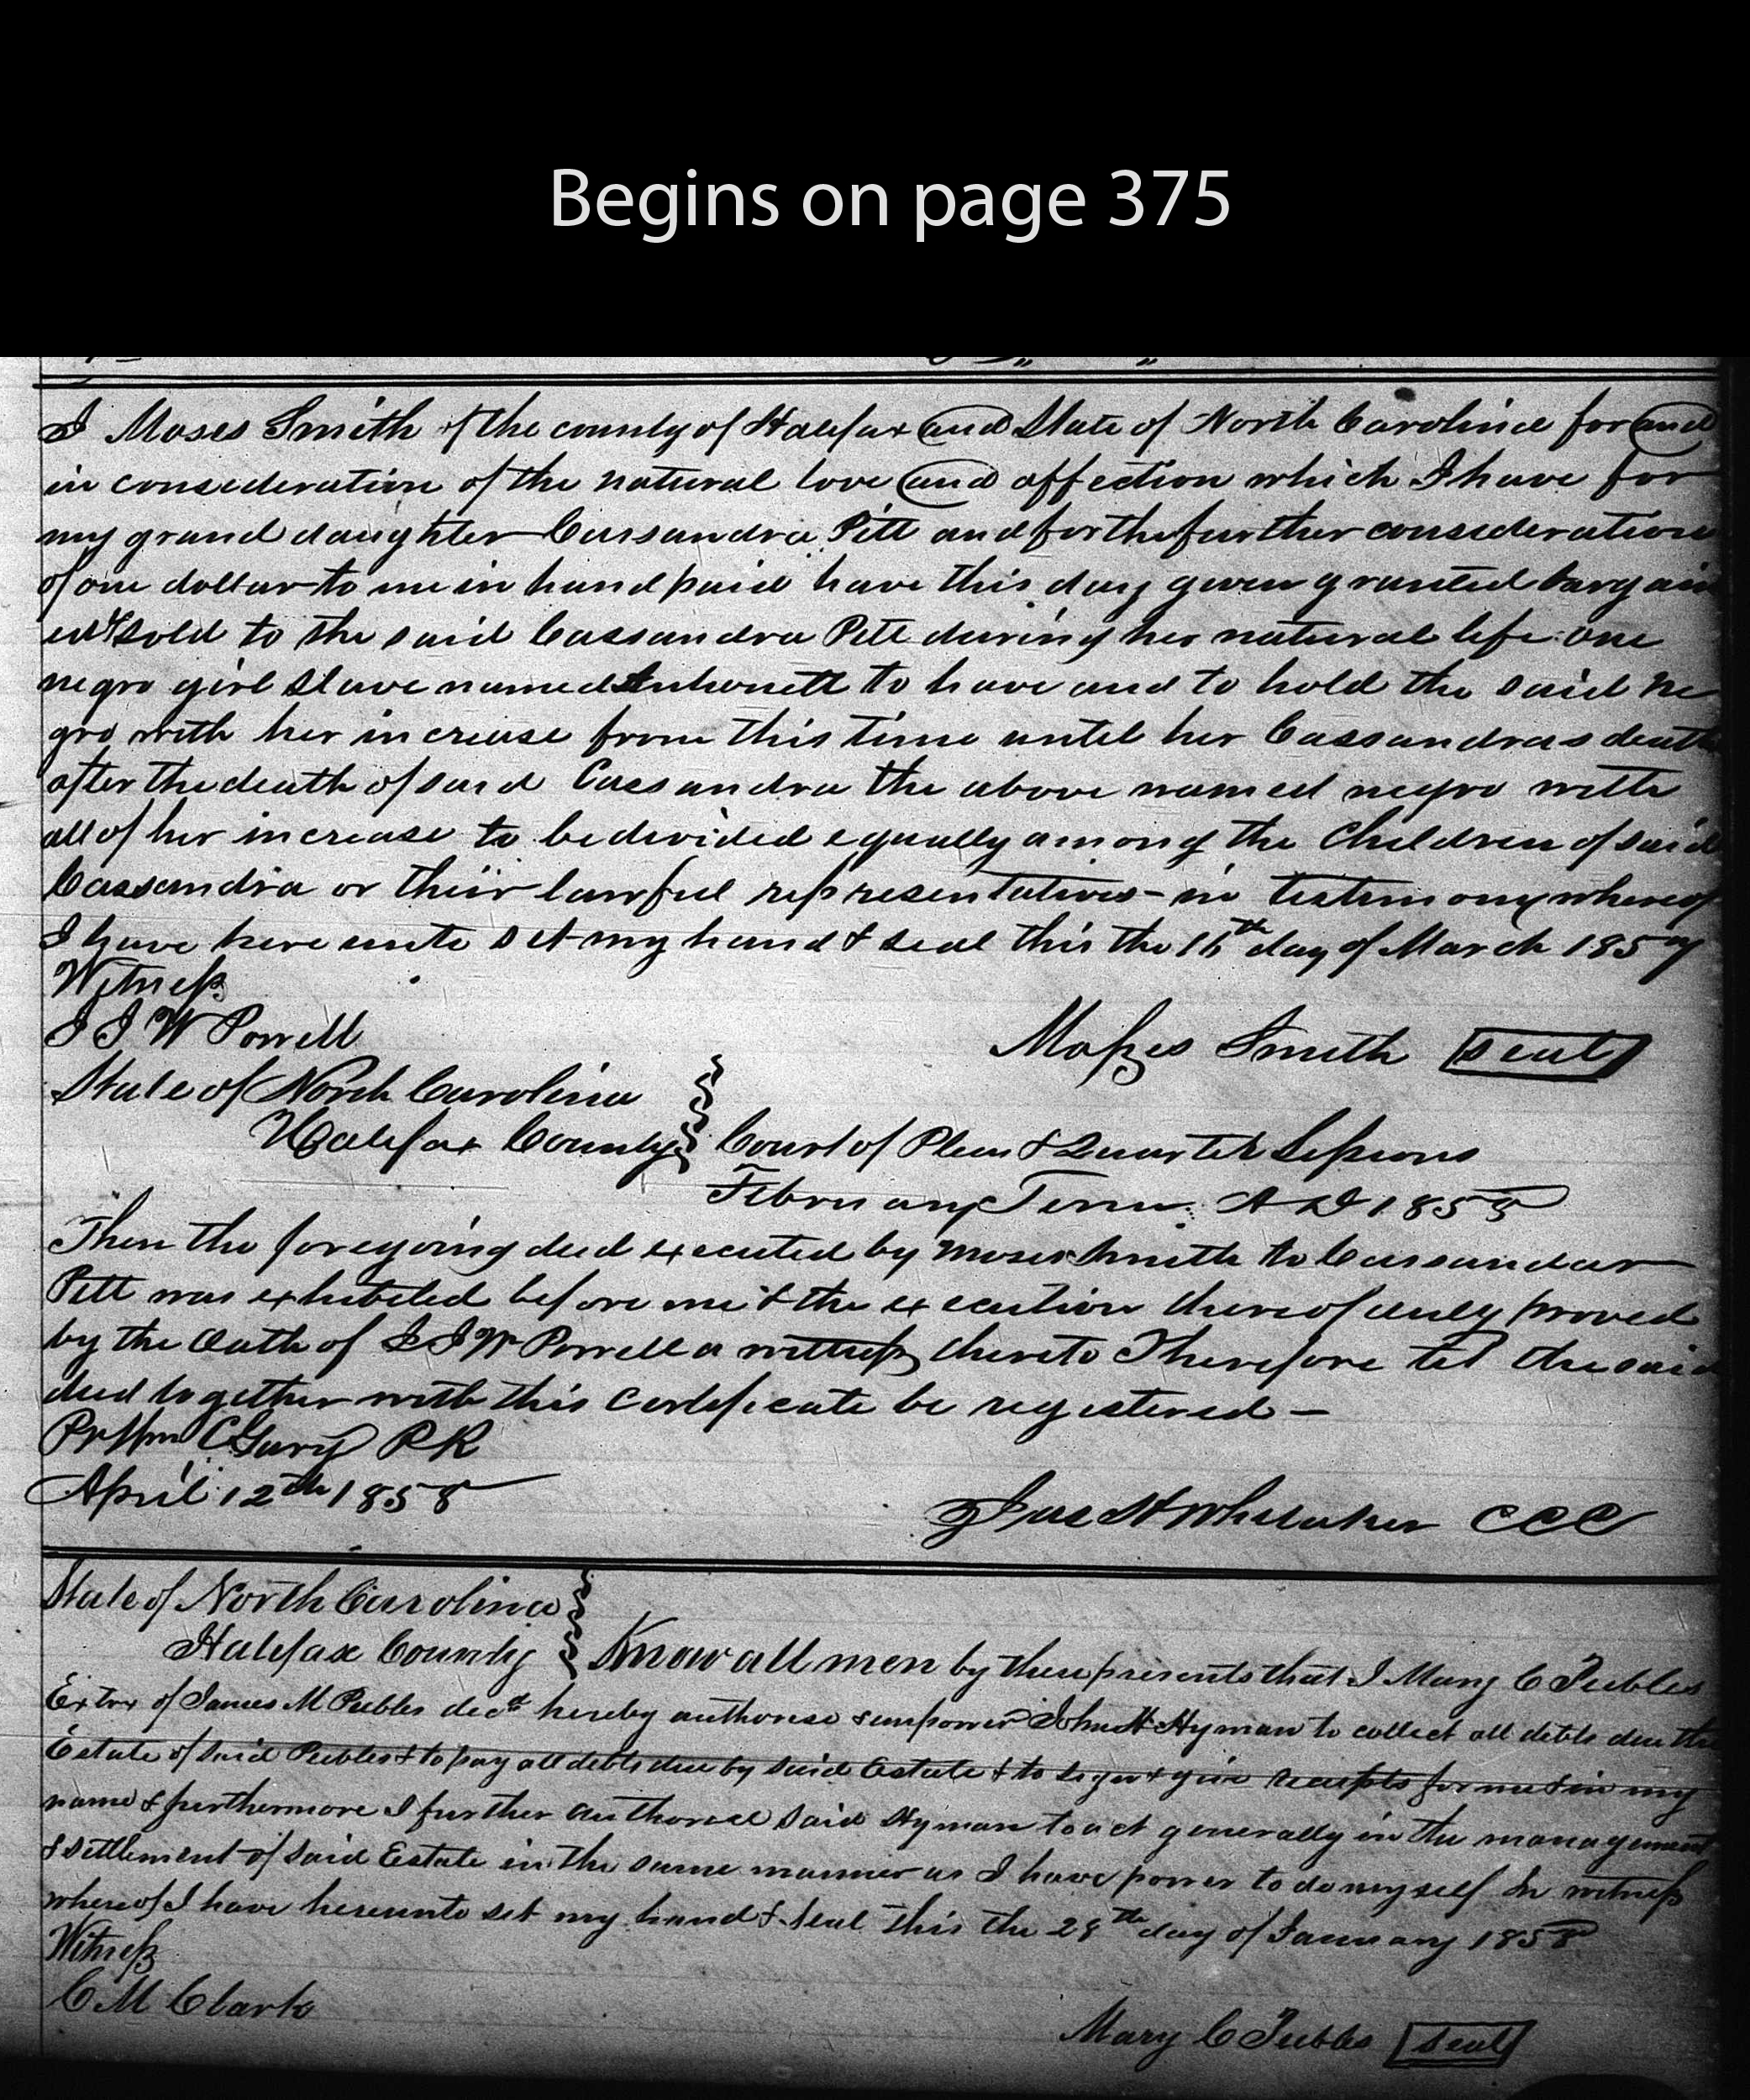 Begins on page 375
I Moses Smith of the county of Halifax and State of North Carolina for and
in consideration of the natural love and affection which I have for
my grand daughter Cassandra Pitt and for the further consideration
of one dollar to me in hand paid have this day given granted bargain
ed & sold to the said Cassandra Pitt during her natural life one
negro girl slave named to have and to hold the said ne
gro with her increase from this time until her Cassandras death
after the death of said Cassandra the above named negro with
all of her increase to be divided equally among the Children of said
Cassandra or their lawful representatives - in testimony whereof
I have here unto set my hand & seal this the 16th day of March 1857
Witness
J J W Powell
Moses Smith seal
State of North Carolina
Halifax County Court of Pleas & Quarter Sessions
February Term A D 1858
Then the foregoing deed executed by Moses Smith to Cassandar
Pitt was exhibited before me & the execution thereof duly proved
by the Oath of J J W Powell a witness thereto Therefore let the said
deed together with this certificate be registered —
Gary P R
April 12th 1858
Jas H Whitaker CCC
State of North Carolina
Halifax County Know all men by these presents that I Mary C Peebles
Extrx of James M Peebles decd hereby authorise & empower John H Hyman to collect all debts due the
Estate of said Peebles & to pay all debts due by said Estate & to sign & give receipts for me & in my
name & furthermore I further authorise said Hyman to act generally in the management
& settlement of said Estate in the same manner as I have power to do myself In witness
whereof I have hereunto set my hand & seal this the 28th day of January 1858
Witness
C M Clark
Mary C Peebles seal